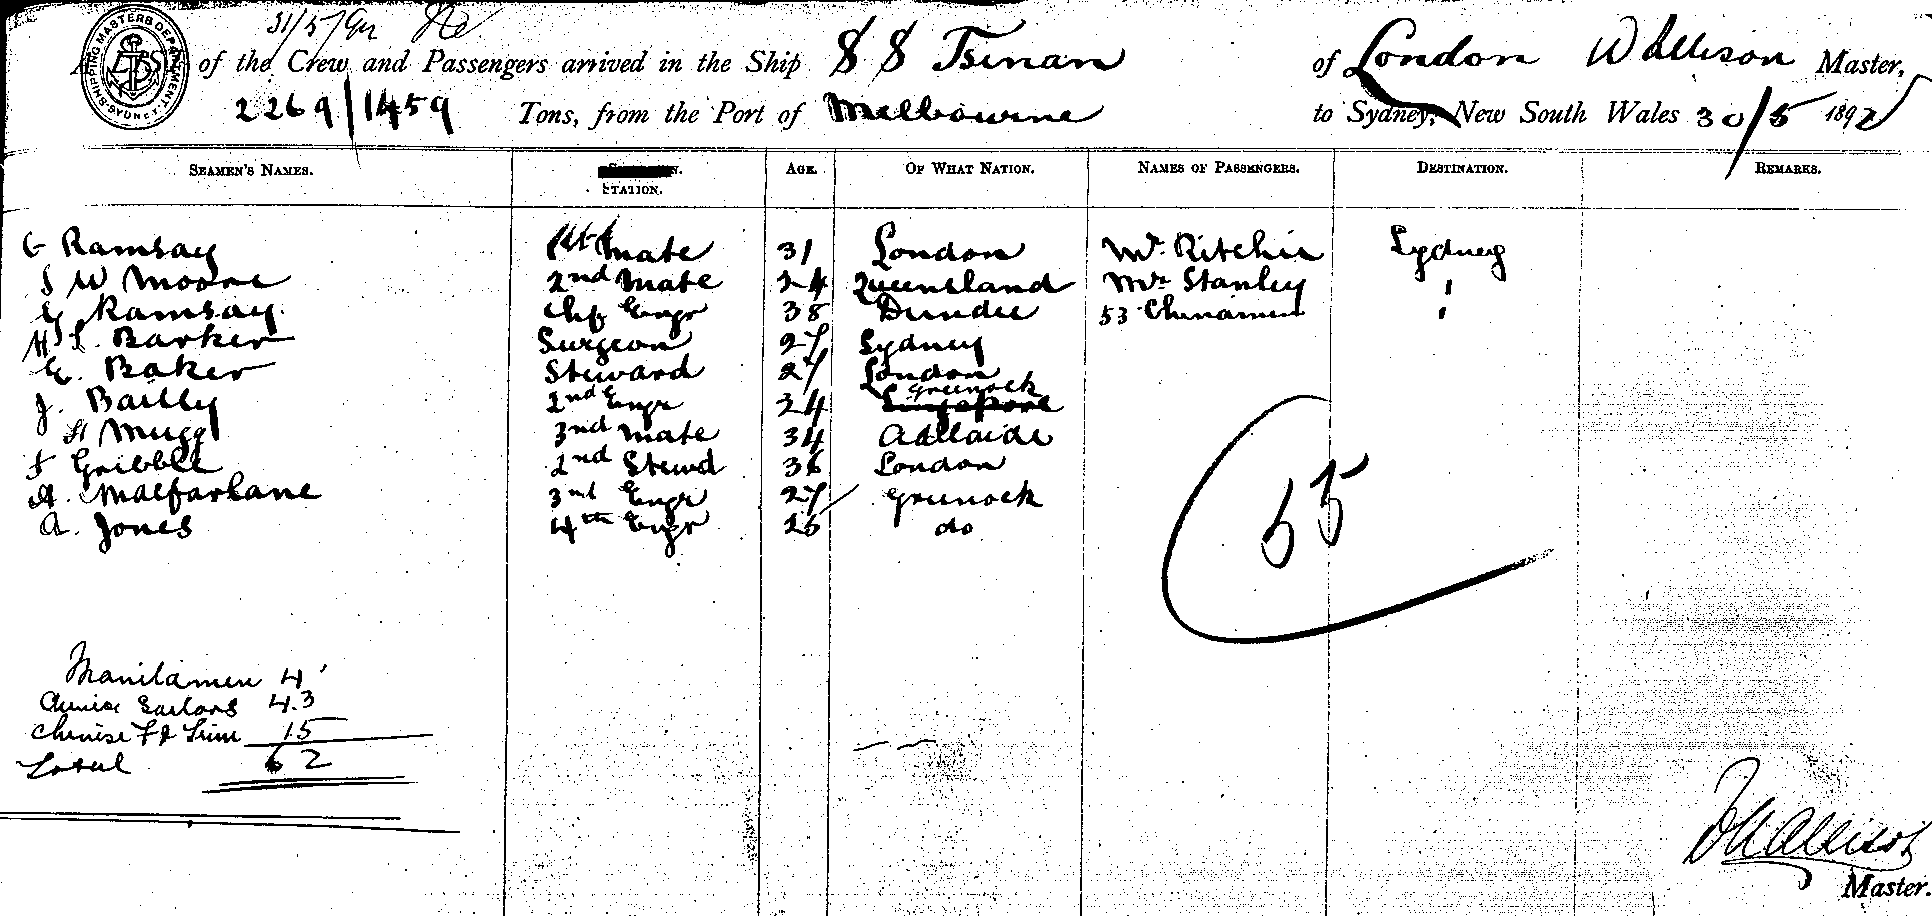 31/5/92
SHIPPING MASTERS DEPARTMENT SYDNEY
A LIST of the Crew and Passengers arrived in the Ship S S Tsinan of London W Allison Master,
2269/1459 Tons, from the Port of Melbourne to Sydney, New South Wales 30/5 1892
SEAMEN'S NAMES. STATION. AGE. OF WHAT NATION. NAMES OF PASSENGERS. DESTINATION. REMARKS.
G Ramsay 1st Mate 31 London Mr. Ritchie Sydney
S W Moore 2nd Mate 24 Queensland Mr Stanley "
G Ramsay. Chf Engr 38 Dundee 53 Chinamen "
H L. Barker Surgeon 27 Sydney
E. Baker Steward 27 London
J. Bailly 2nd Engr 34 Singapore Greenock
H Mugg 3rd Mate 34 Adelaide
F Gribble 2nd Stewd 36 London
A. Macfarlane 3rd Engr 27 Greenock
A. Jones 4th Engr 25 do
55
Manilamen 4
Chinese Sailors 43
Chinese F & Trim 15
Total 62
W Allison
Master.